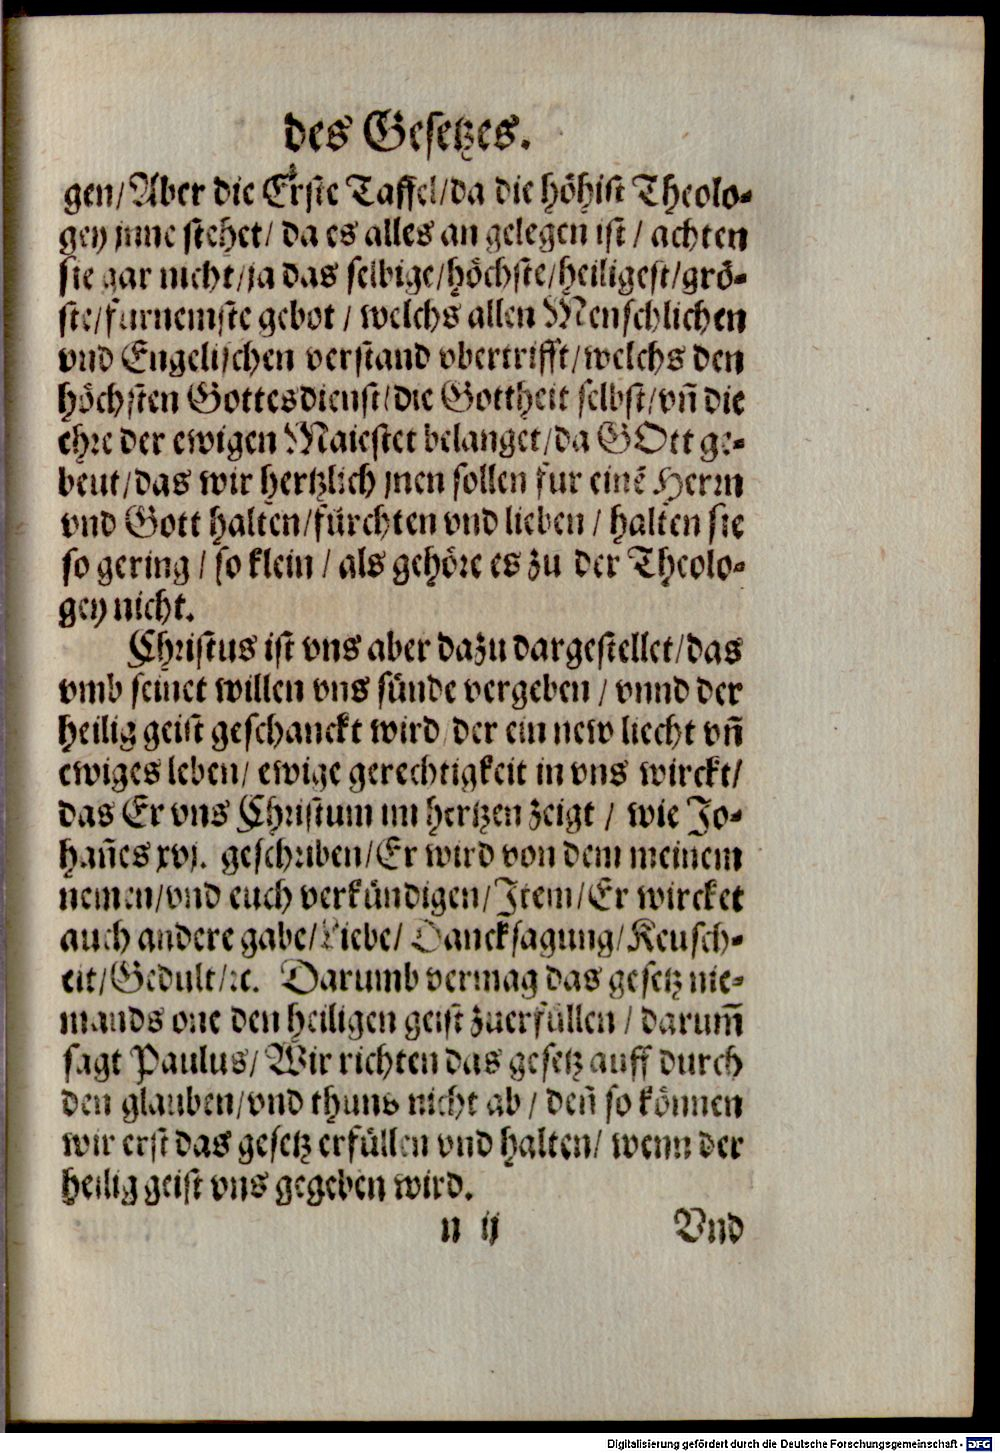 des Gesetzes.
gen/Aber die Erste Taffel/da die höhist Theolo-
gey jnne stehet/ da es alles an gelegen ist / achten
sie gar nicht/ja das selbige/höchste/heiligest/grö-
ste/furnemste gebot / welchs allen Menschlichen
vnd Engelischen verstand vbertrifft/welchs den
höchsten Gottesdienst/die Gottheit selbst/vñ die
ehre der ewigen Maiestet belanget/da GOtt ge-
beut/das wir hertzlich jnen sollen fur einẽ Herrn
vnd Gott halten/fürchten vnd lieben / halten sie
so gering / so klein / als gehöre es zu der Theolo-
gey nicht.
Christus ist vns aber dazu dargestellet/das
vmb seinet willen vns sünde vergeben / vnnd der
heilig geist geschanckt wird/der ein new liecht vñ
ewiges leben/ ewige gerechtigkeit in vns wirckt/
das Er vns Christum im hertzen zeigt / wie Jo-
hañes xvj. geschriben/Er wird von dem meinem
nemen/vnd euch verkündigen/Item/Er wircket
auch andere gabe/Liebe/ Dancksagung/Keusch-
eit/Gedult/ꝛc. Darumb vermag das gesetz nie-
mands one den heiligen geist zuerfüllen / darum̃
sagt Paulus/ Wir richten das gesetz auff durch
den glauben/vnd thuns nicht ab / deñ so können
wir erst das gesetz erfüllen vnd halten/ wenn der
heilig geist vns gegeben wird.
n ij Vnd
Digitalisierung gefördert durch die Deutsche Forschungsgemeinschaft - DFG